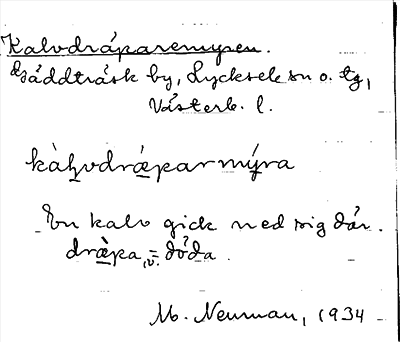 Kalvdräparemyren.
Gäddträsk by, Lycksele sn o. tg,
Västerb. l.
kàḷvdræ̀parmýra
En kalv gick ned sig där.
dræ̀pa, v. = döda.
M. Neuman, 1934